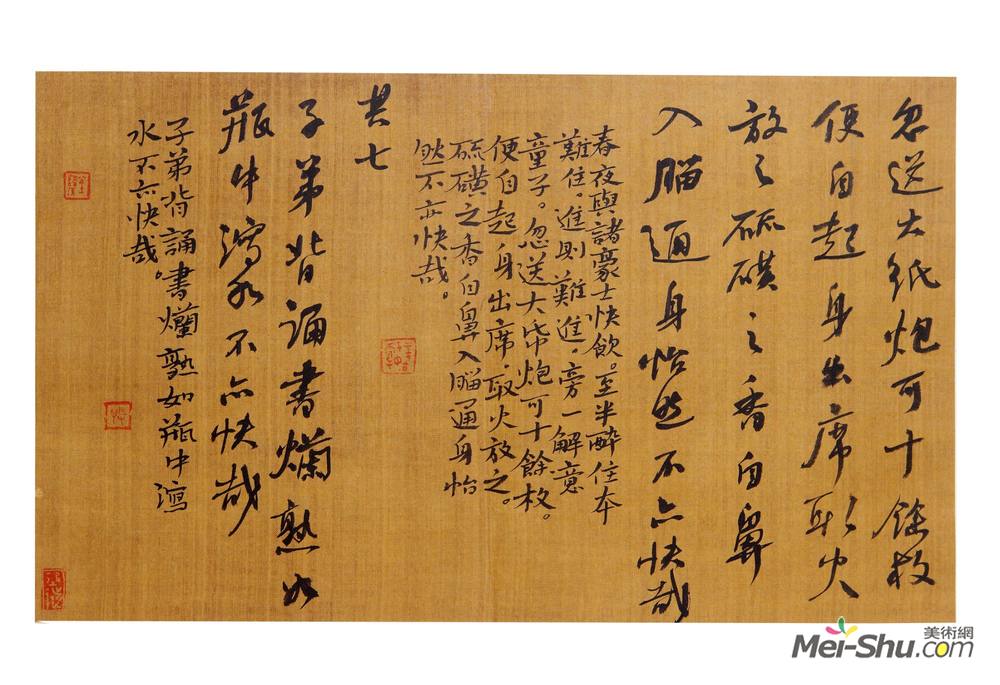 忽送大纸炮可十餘枚
便自起身出席取火
放之硫磺之香自鼻
入腦通身怡然不亦快哉
春夜與諸豪士快飲。至半醉住本
難住。進則難進。旁一解意
童子。忽送大帋炮可十餘枚。
便自起身出席。取火放之。
硫磺之香自鼻入腦通身怡
然不亦快哉。
其七
子弟背誦書爛熟如
瓶中瀉水不亦快哉
子弟背誦書爛熟如瓶中瀉
水不亦快哉。
美術網
Mei-Shu.com